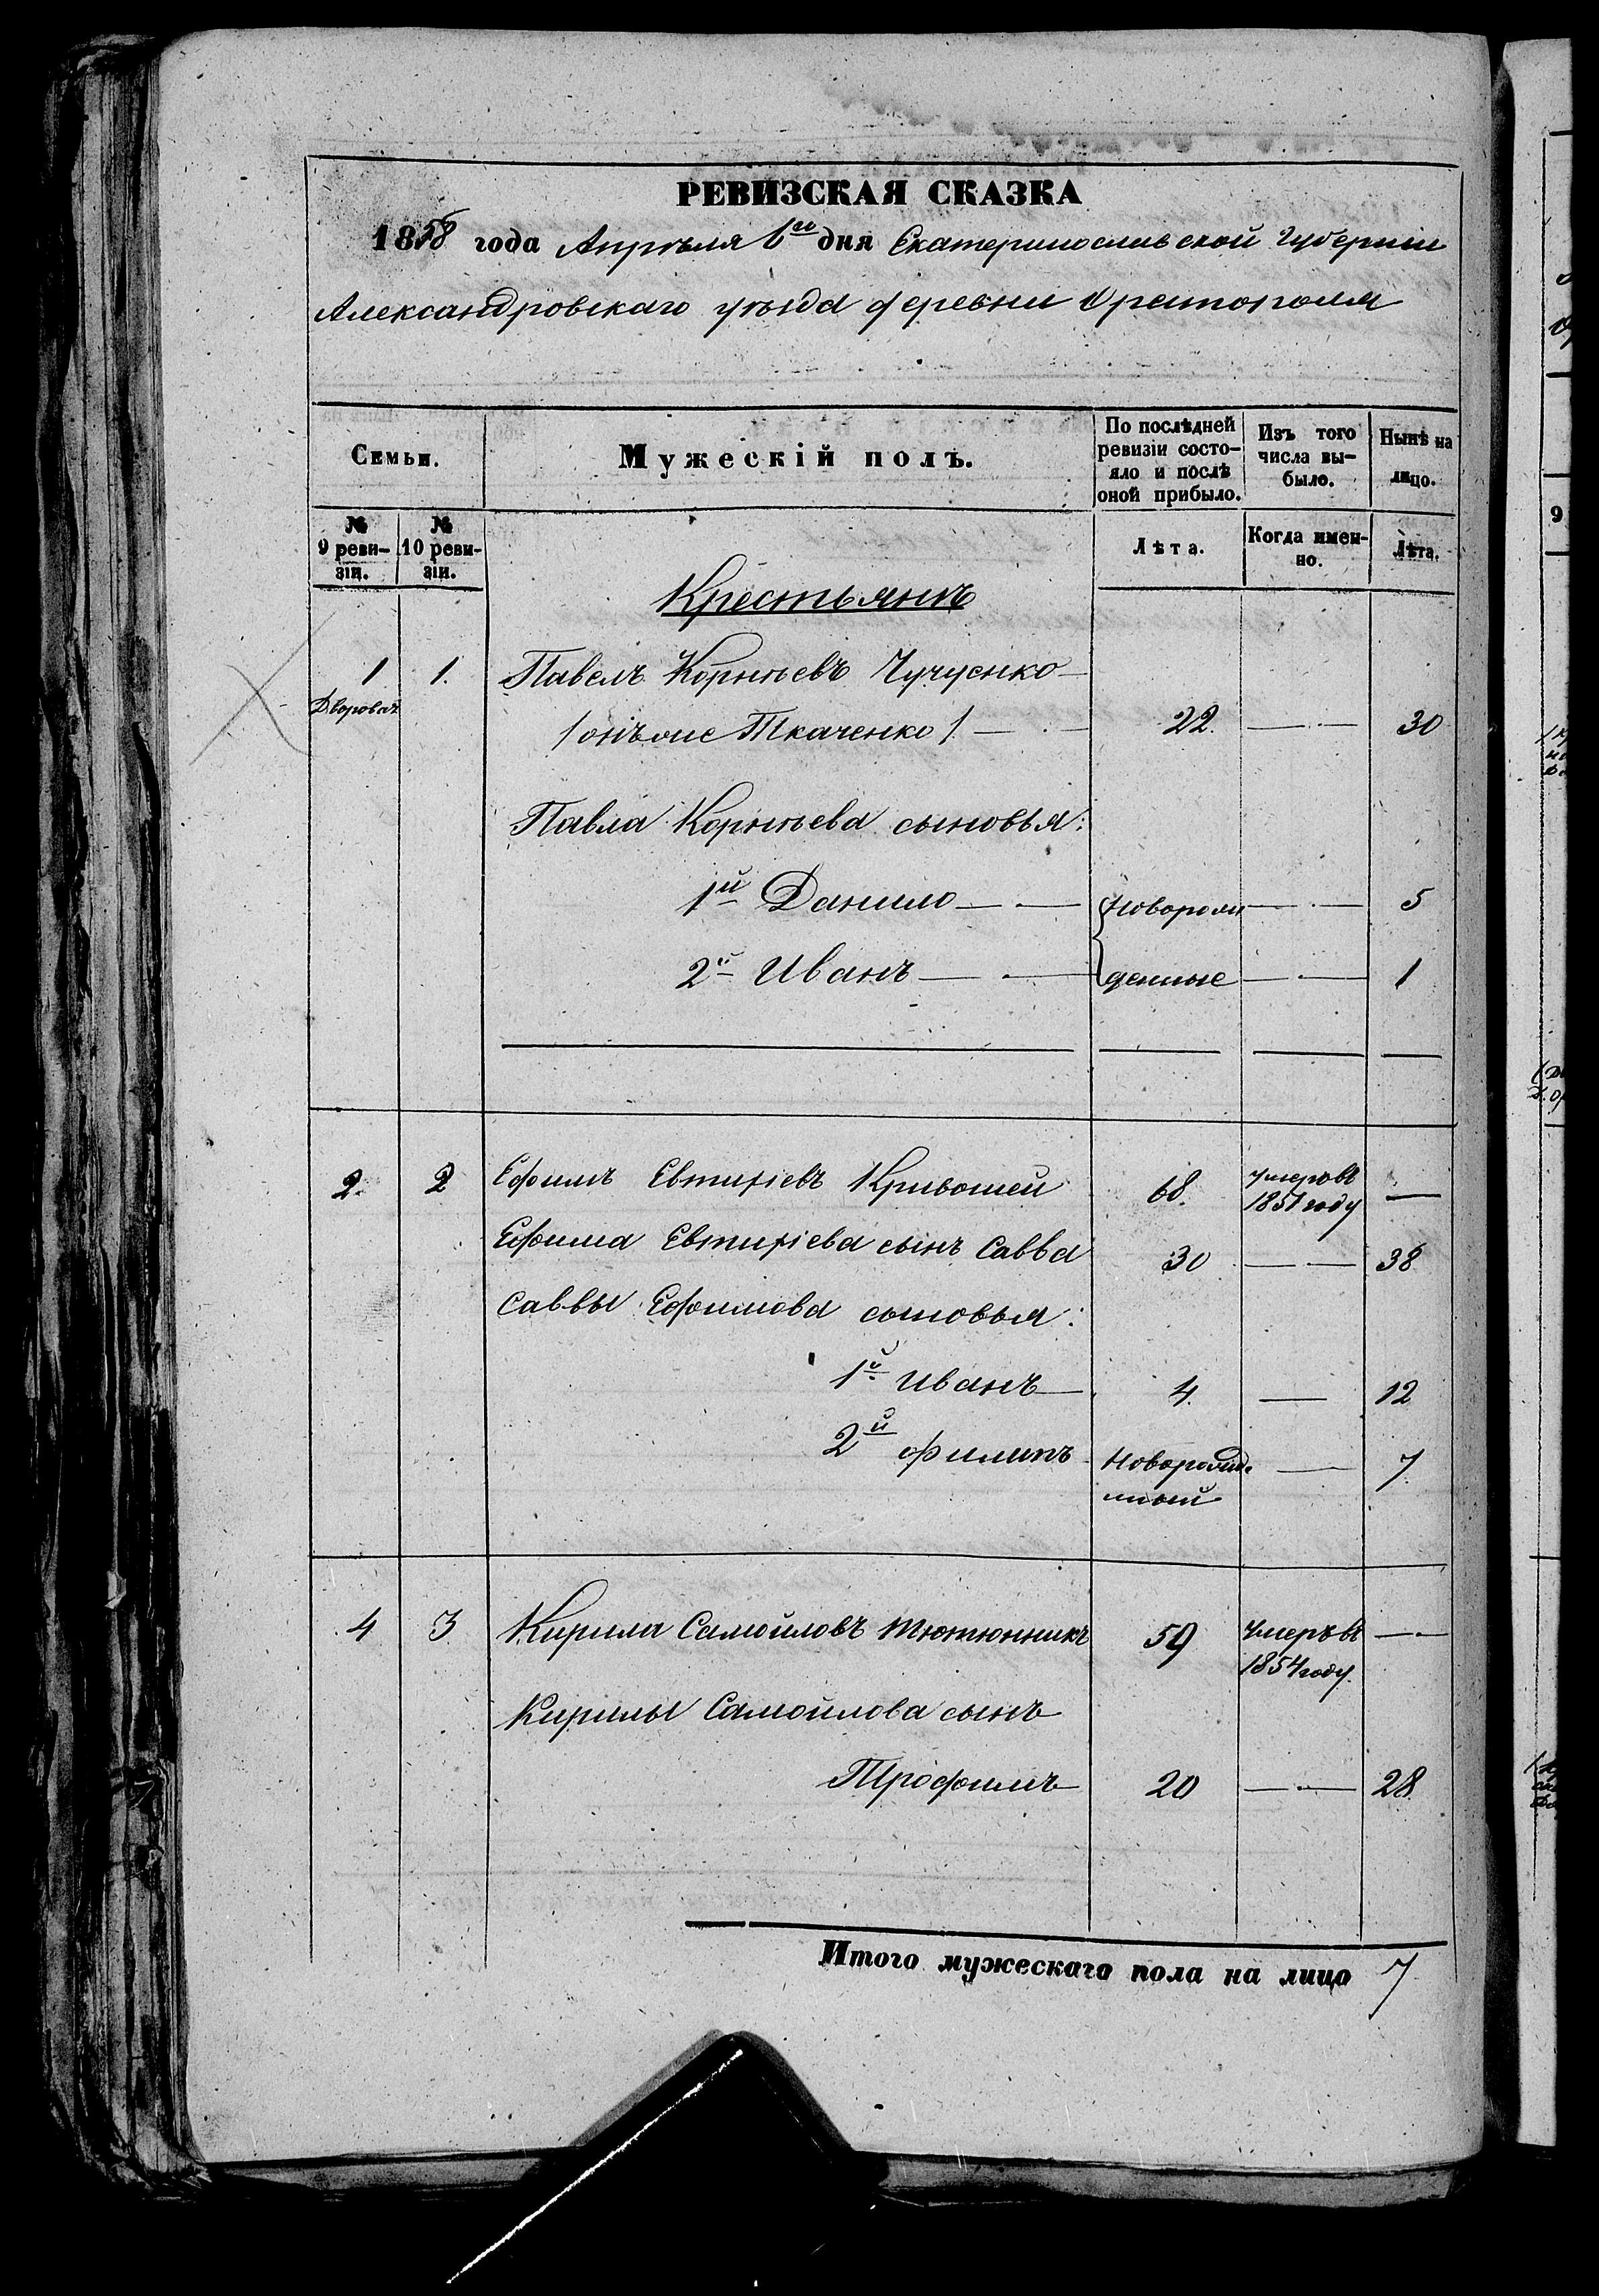 РЕВИЗСКАЯ СКАЗКА
1858 года Апрѣля 1го дня Екатеринославской Губерніи
Александровскаго уѣзда деревни Орестополя
Семьи.
Мужескій полъ.
По послѣдней ревизіи состо-
яло и послѣ
оной прибыло.
Изъ того
числа вы-
было.
Нынѣ на
лицо.
№
9 реви-
зіи.
№
10 реви-
зіи.
Лѣта.
Когда имен-
но.
Лѣта.
Крестьянѣ
1 1. Павелъ Корнѣевъ Чучуенко
Дворовая
/ онъ же Ткаченко / 22. 30
Павла Корнѣева сыновья:
1й Данило Новорож 5
2й Иванъ денные 1
2. 2 Ефимъ Евтихіевъ Кривошеи 68. умеръ въ
1851 году
Ефима Евтихіева сынъ Савва 30 38
Саввы Ефимова сыновья:
1й Иванъ 4. 12
2й Филипъ Новорожд. 7
нный
4 3 Кирила Самойловъ Тютюнникъ 59 Умеръ въ
1854 году.
Кирилы Самойлова сынъ
Трофимъ 20 28
Итого мужескаго пола на лицо 7
9